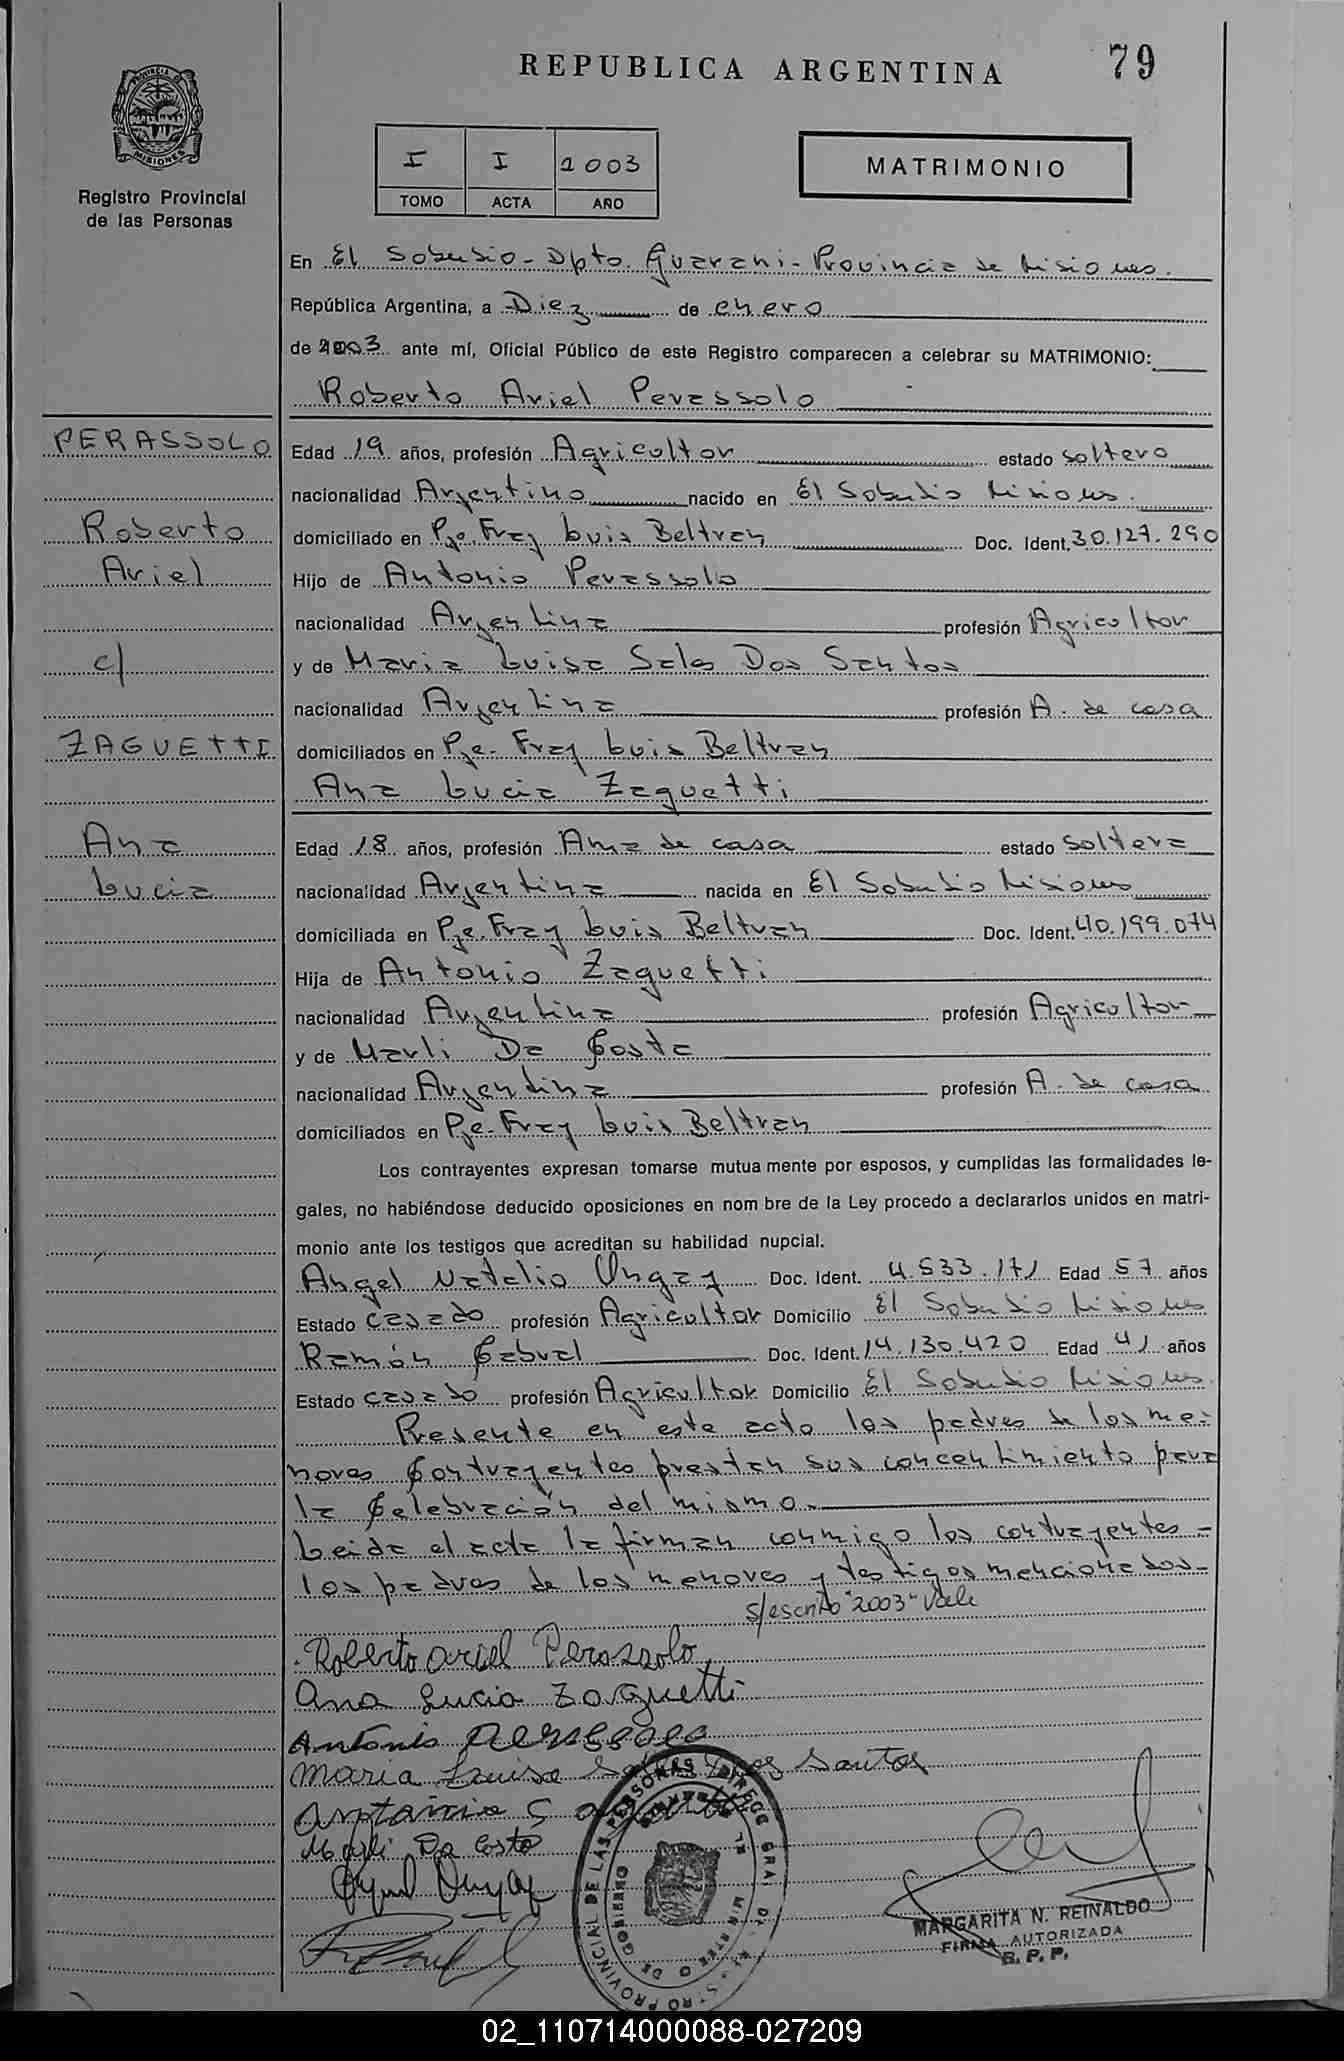 REPUBLICA ARGENTINA
79
PROVINCIA DE MISIONES
Registro Provincial
de las Personas
I I 2003
TOMO ACTA AÑO
MATRIMONIO
En El Soberbio - Dpto. Guarani - Provincia de Misiones.
República Argentina, a Diez de enero
de 2003 ante mí, Oficial Público de este Registro comparecen a celebrar su MATRIMONIO:
Roberto Ariel Perassolo
PERASSOLO
Roberto
Ariel
c/
ZAGUETTI
Ana
Lucia
Edad 19 años, profesión Agricultor estado soltero
nacionalidad Argentino nacido en El Soberbio Misiones.
domiciliado en Pje. Fray Luis Beltran Doc. Ident. 30.127.290
Hijo de Antonio Perassolo
nacionalidad Argentina profesión Agricultor
y de Maria Luisa Sales Dos Santos
nacionalidad Argentina profesión A. de casa
domiciliados en Pje. Fray Luis Beltran
Ana Lucia Zaguetti
Edad 18 años, profesión Ama de casa estado soltera
nacionalidad Argentina nacida en El Soberbio Misiones
domiciliada en Pje. Fray Luis Beltran Doc. Ident. 40.199.074
Hija de Antonio Zaguetti
nacionalidad Argentina profesión Agricultor
y de Marli Da Costa
nacionalidad Argentina profesión A. de casa
domiciliados en Pje. Fray Luis Beltran
Los contrayentes expresan tomarse mutua mente por esposos, y cumplidas las formalidades le-
gales, no habiéndose deducido oposiciones en nom bre de la Ley procedo a declararlos unidos en matri-
monio ante los testigos que acreditan su habilidad nupcial.
Angel Natalio Ungay Doc. Ident. 4.533.171 Edad 57 años
Estado casado profesión Agricultor Domicilio El Soberbio Misiones
Ramón Cabral Doc. Ident. 14.130.420 Edad 41 años
Estado casado profesión Agricultor Domicilio El Soberbio Misiones.
Presente en este acto los padres de los me-
nores Contrayentes prestan sus concentimiento para
la Celebración del mismo.
Leida el acta la firman conmigo los contrayentes -
los padres de los menores y testigos mencionados-
s/escrito "2003" Vale
Roberto Ariel Perassolo
Ana Lucia Zaguetti
Antonio Perassolo
Maria Luisa Sales Dos Santos
Antonio Zaguetti
Marli Da Costa
MARGARITA N. REINALDO
FIRMA AUTORIZADA
R. P. P.
02_110714000088-027209